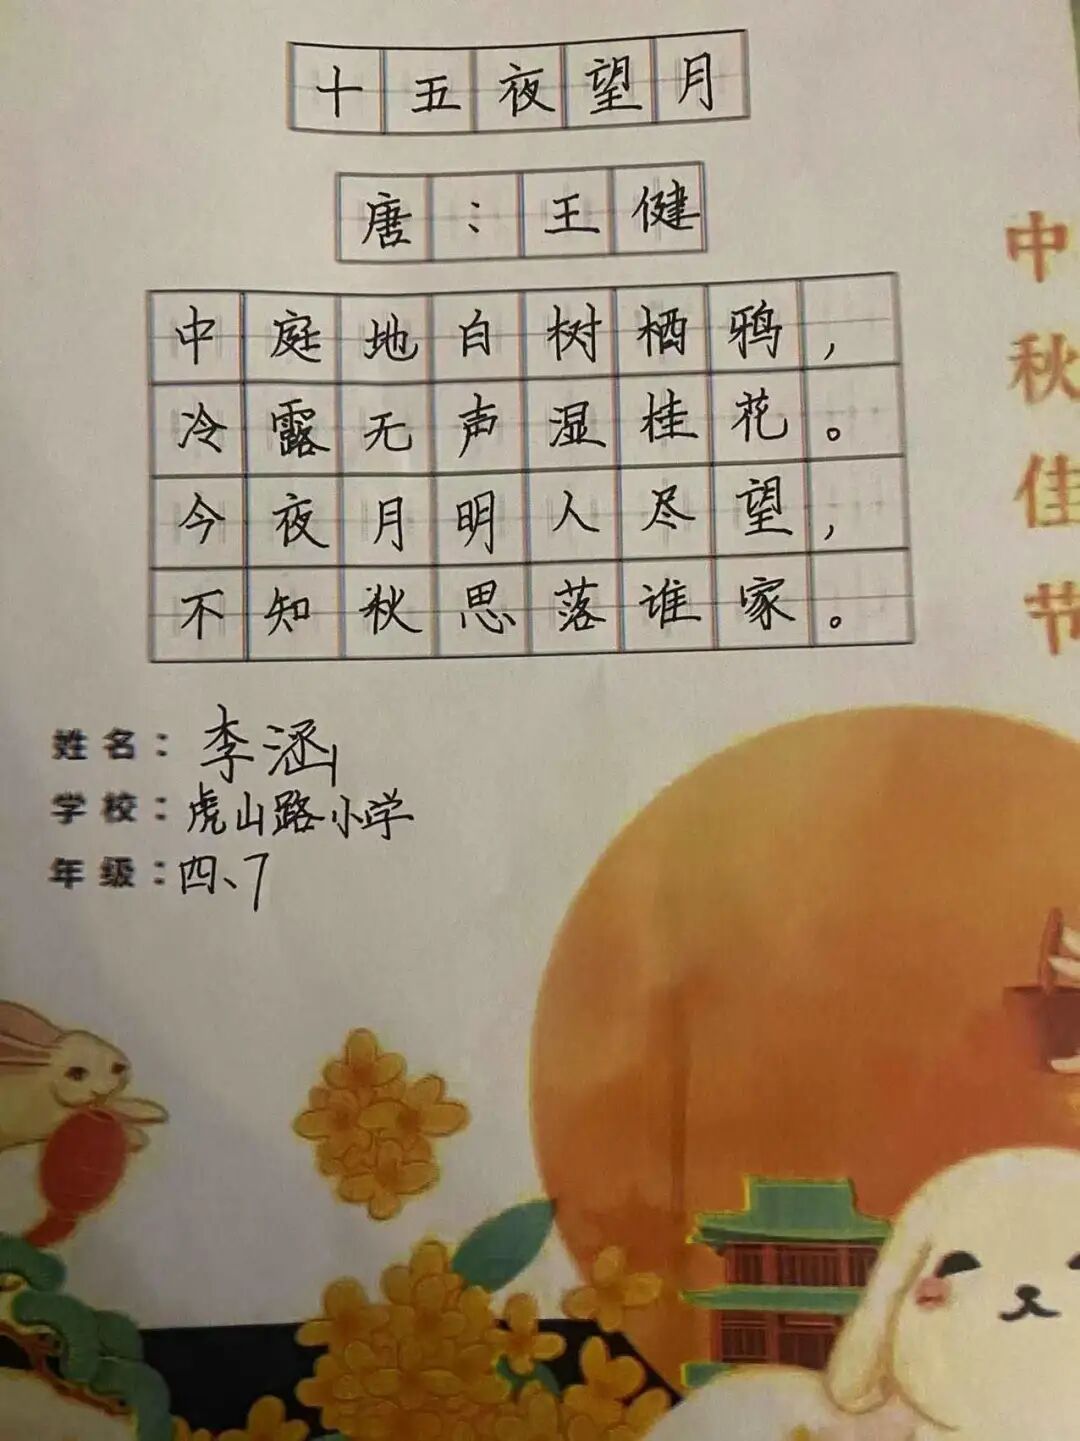 十五夜望月
唐：王健
中庭地白树栖鸦，
冷露无声湿桂花。
今夜月明人尽望，
不知秋思落谁家。
姓名：李涵
学校：虎山路小学
年级：四、7
中秋佳节